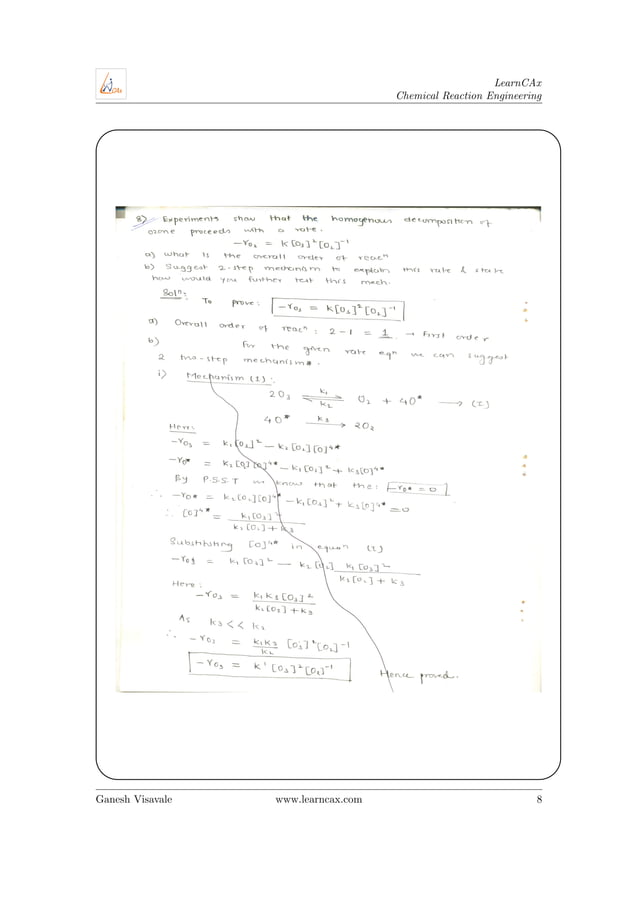 LearnCAx
Chemical Reaction Engineering
8) Experiments show that the homogenous decomposition of
ozone proceeds with a rate.
-rO3 = K[O3]²[O2]⁻¹
a) What is the overall order of reacⁿ
b) Suggest 2-step mechanism to explain this rate & state
how would you further test this mech.
Solⁿ:
To prove: -rO3 = K[O3]²[O2]⁻¹
a) Overall order of reacⁿ: 2-1 = 1 → First order
b) For the given rate eqn we can suggest
2 two-step mechanism.
i) Mechanism (I):
2O3 ⇌ O2 + 4O* → (I)
k1
k2
4O* → 2O2
k3
Here:
-rO3 = k1[O3]² - k2[O2][O]⁴*
-rO* = k2[O][O]⁴* - k1[O3]² + k3[O]⁴*
By P.S.S.T we know that the: -rO* = 0
∴ -rO* = k2[O2][O]⁴* - k1[O3]² + k3[O]⁴* = 0
∴ [O]⁴* = k1[O3]² / k2[O2] + k3
Substituting [O]⁴* in equan (I)
-rO3 = k1[O3]² - k2[O2] k1[O3]² / k2[O2] + k3
Here:
-rO3 = k1k3[O3]² / k2[O2] + k3
As k3 << k2
∴ -rO3 = k1k3 / k2 [O3]²[O2]⁻¹
-rO3 = k'[O3]²[O2]⁻¹
Hence proved.
Ganesh Visavale www.learncax.com 8